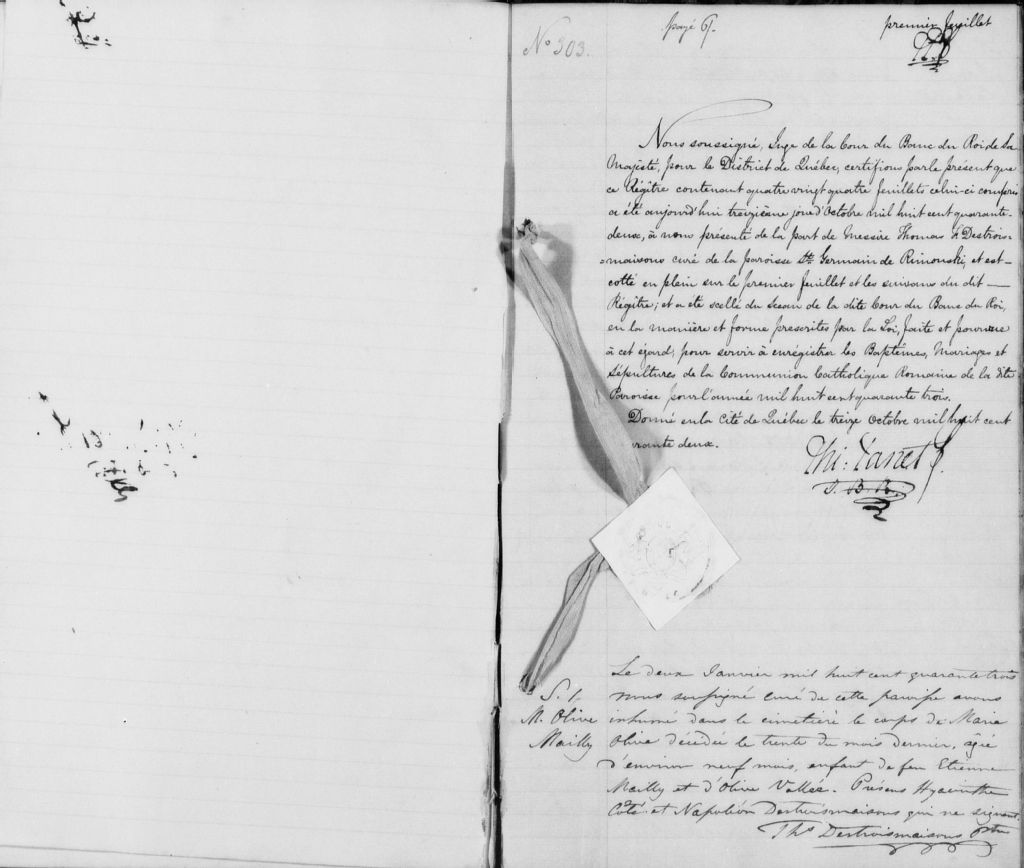 No 303.
payé 6/.
premier feuillet
Nous soussigné, Juge de la Cour du Banc du Roi, de Sa
Majesté, pour le District de Québec, certifions par le présent que
ce Régître contenant quatre vingt quatre feuillets celui-ci compris
a été aujourd'hui treizième jour d'Octobre mil huit cent quarante-
deux, à nous présenté de la part de Messire Thomas Destrois-
=maisons curé de la paroisse St. Germain de Rimouski, et est-
cotté en plein sur le premier feuillet et les suivans du dit —
Régître; et a été scellé du Sceau de la dite Cour du Banc du Roi,
en la manière et forme prescrites par la Loi, faite et pourvue
à cet égard; pour servir à enrégistrer les Baptêmes, Mariages et
Sépultures de la Communion Catholique Romaine de la dite
Paroisse pour l'année mil huit cent quarante trois.
Donné en la Cité de Québec le treize Octobre mil huit cent
rante deux.
Thi: Panet J.
J. B. R.
S. 1.
M. Olive
Mailly
Le deux Janvier mil huit cent quarante trois
nous soussigné curé de cette paroisse avons
inhumé dans le cimetière le corps de Marie
Olive décédée le trente du mois dernier, âgée
d'environ neuf mois, enfant de feu Etienne
Mailly et d'Olive Vallée. Présens Hyacinthe
Côté et Napoléon Destroismaisons qui ne signent.
Ths Destroismaisons Ptre